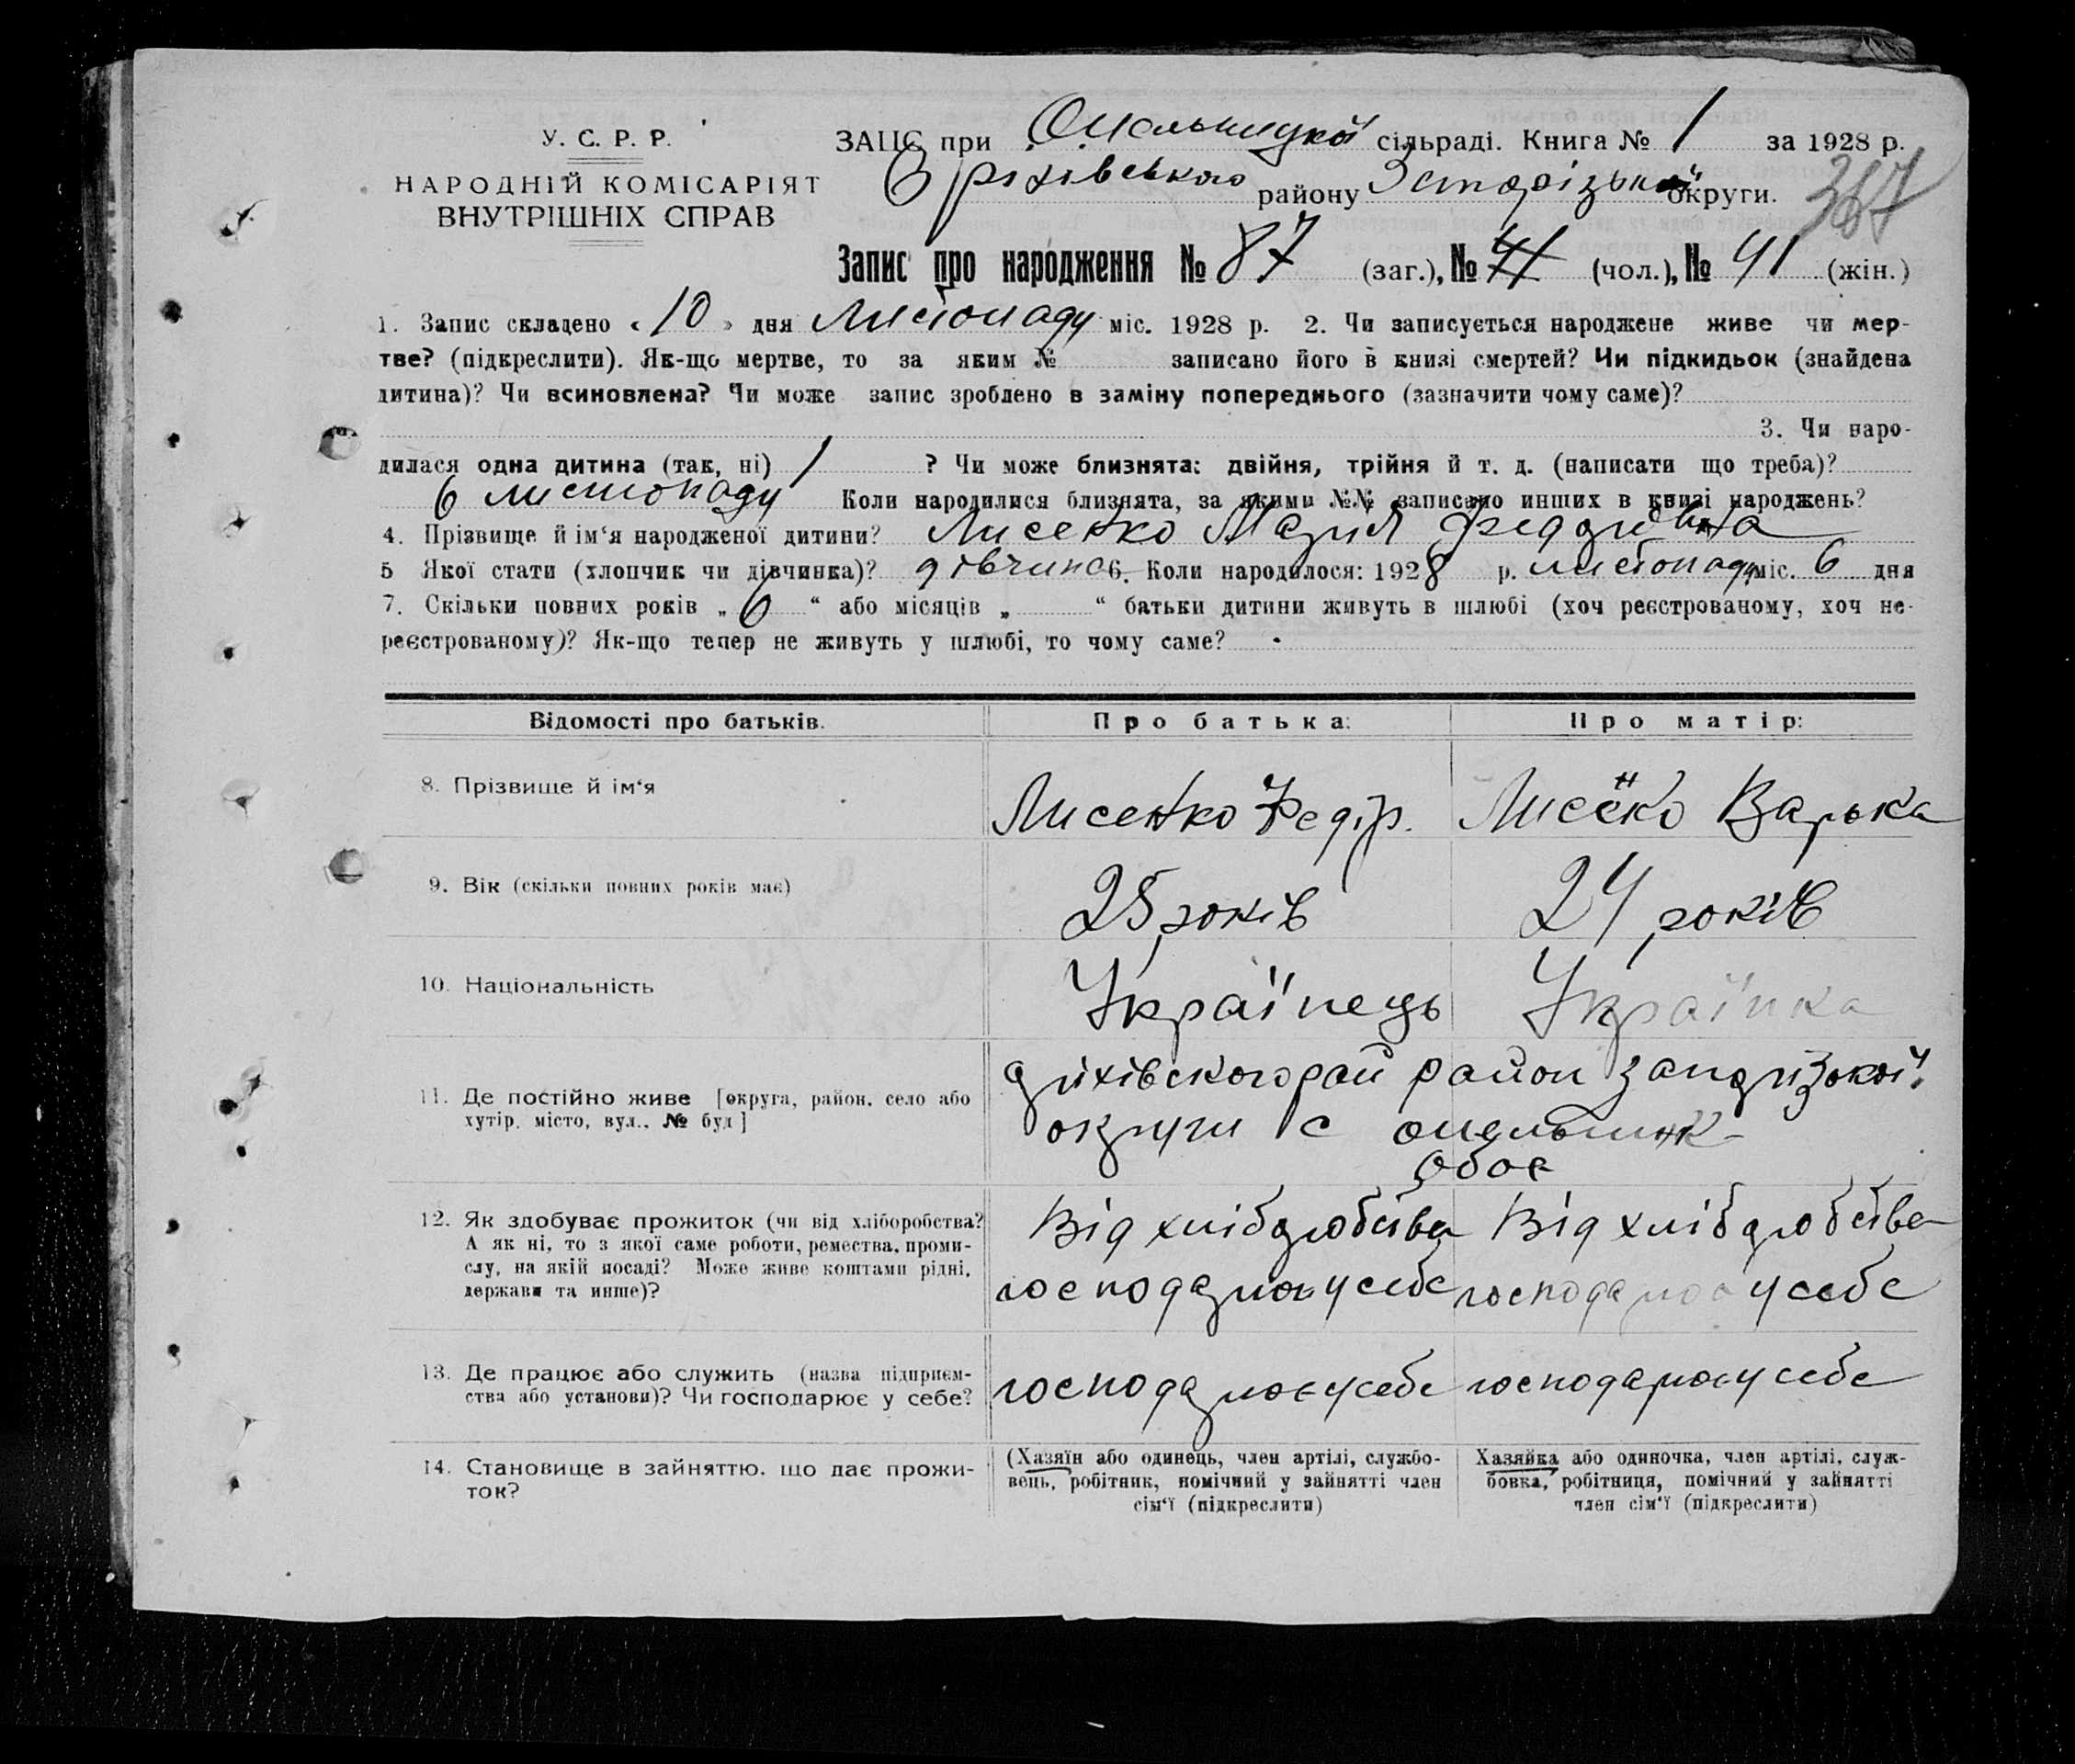 У. С. Р. Р.
НАРОДНІЙ КОМІСАРІЯТ
ВНУТРІШНІХ СПРАВ
ЗАЦС при Омельницкої сільраді. Книга № 1 за 1928 р.
Оріхівського району Запорізької округи.
367
Запис про народження № 87 (заг.), № 41 (чол.), № 41 (жін.)
1. Запис складено « 10 » дня Листопаду міс. 1928 р. 2. Чи записується народжене живе чи мер-
тве? (підкреслити). Як-що мертве, то за яким № записано його в книзі смертей? Чи підкидьок (знайдена
дитина)? Чи всиновлена? Чи може запис зроблено в заміну попереднього (зазначити чому саме)?
3. Чи наро-
дилася одна дитина (так, ні) 1 ? Чи може близнята: двійня, трійня й т. д. (написати що треба)?
6 листопаду Коли народилися близнята, за якими №№ записано инших в книзі народжень?
4. Прізвище й ім‘я народженої дитини? Лисенко Марія Федоровна
5 Якої стати (хлопчик чи дівчинка)? дівчина 6. Коли народилося: 1928 р. листопаду міс. 6 дня
7. Скільки повних років „ 6 “ або місяців „ “ батьки дитини живуть в шлюбі (хоч реєстрованому, хоч не-
реєстрованому)? Як-що тепер не живуть у шлюбі, то чому саме?
Відомості про батьків.
Про батька:
Про матір:
8. Прізвище й ім‘я
Лисенко Федір.
Лисенко Варька
9. Вік (скільки повних років має)
25 років
24 років
10. Національність
Українець
Українка
11. Де постійно живе [округа, район, село або
хутір, місто, вул., № буд]
район
округи с
обоє
12. Як здобуває прожиток (чи від хліборобства?
А як ні, то з якої саме роботи, ремества, проми-
слу, на якій посаді? Може живе коштами рідні,
держави та инше)?
Від хліборобства
господарює у себе
Від хліборобства
господарює у себе
13. Де працює або служить (назва підприєм-
ства або установи)? Чи господарює у себе?
господарює у себе
господарює у себе
14. Становище в зайняттю, що дає прожи-
ток?
(Хазяїн або одинець, член артілі, службо-
вець, робітник, помічний у зайнятті член
сім‘ї (підкреслити)
Хазяйка або одиночка, член артілі, служ-
бовка, робітниця, помічний у зайнятті
член сім‘ї (підкреслити)